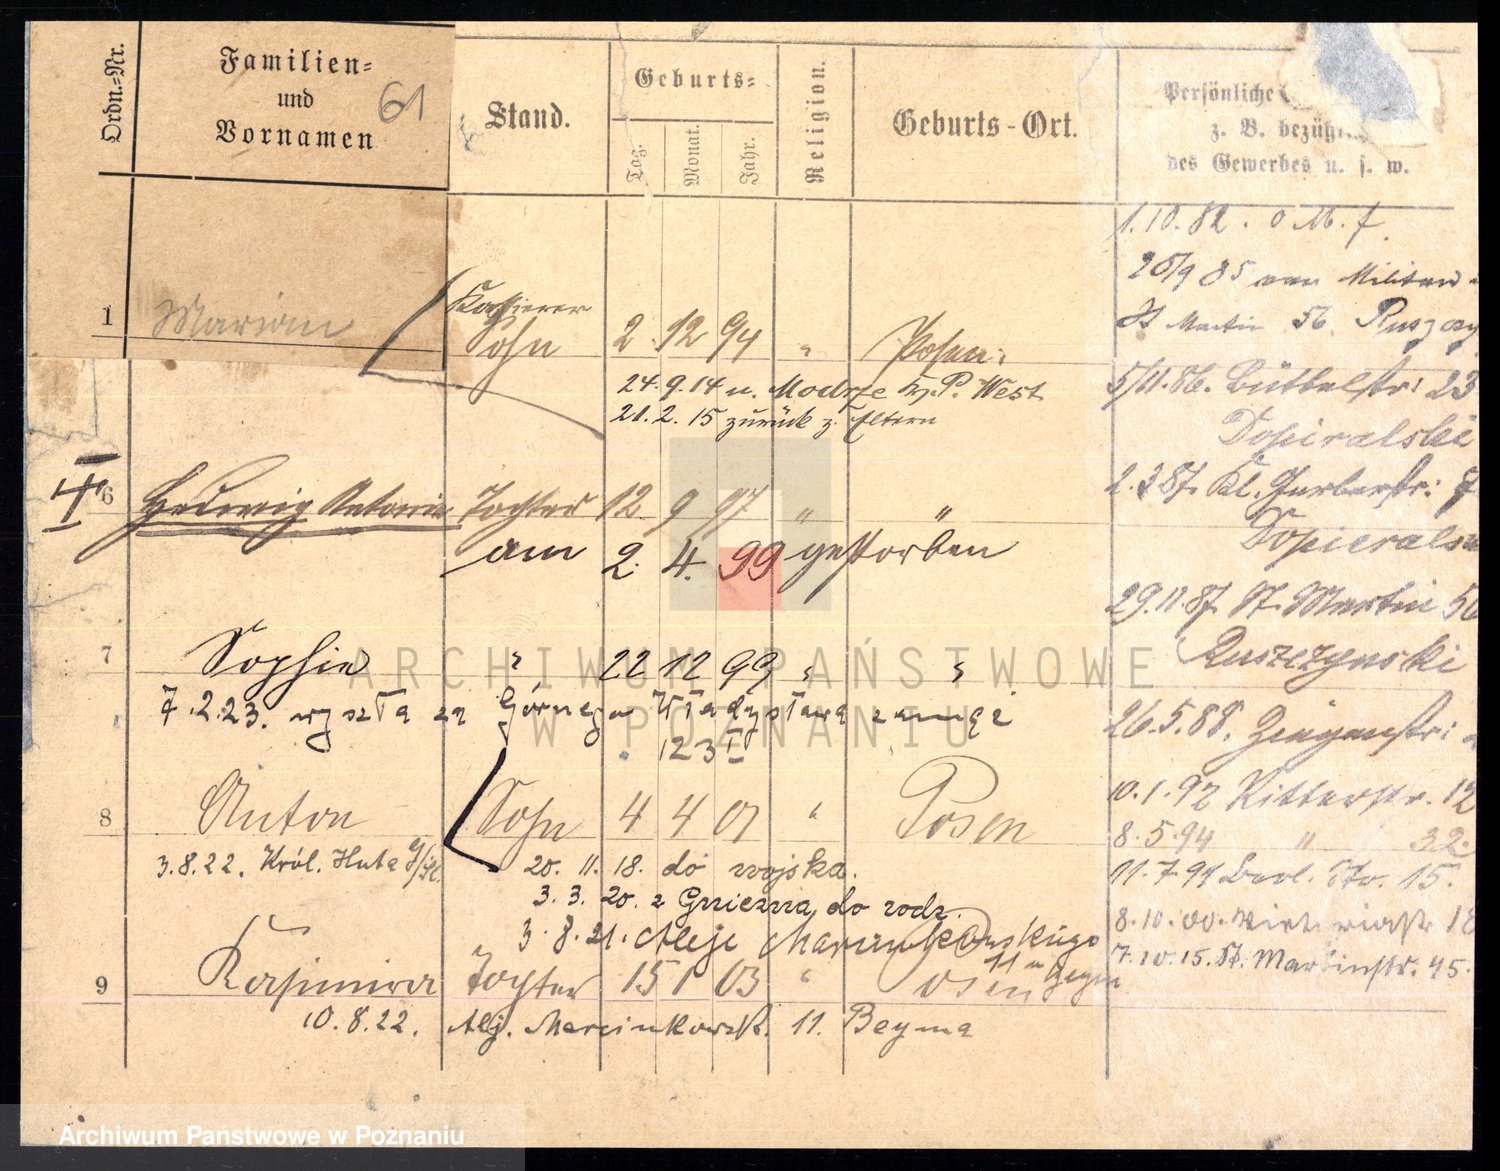 Ordn.-Nr.
Familien-
und
Vornamen
61
Stand.
Geburts-
Tag.
Monat.
Jahr.
Religion.
Geburts-Ort.
Persönliche
z. B.
des Gewerbes u. s. w.
1.10.82.
1 Marian Kassierer
Sohn 2 12 94 " Posen.
24.9.14 n. Modrze Kr. P. West
21.2.15 zurück z. Eltern
6 Hedwig Antonie Tochter 12 9 97 " "
am 2. 4. 99 gestorben
7 Sophie " 22 12 99 " "
7.2.23. wyszła za Górnego Władysława zamąż
123 I
8 Anton Sohn 4 4 01 " Posen
3.8.22. Król. Huta G/Śl.
20. 11. 18. do wojska.
3. 3. 20. z Gniezna do rodz.
3. 8. 21. Aleje Marcinkowskiego
11
9 Kasimira Tochter 15 1 03 " Posen
10.8.22. Alj. Marcinkowsk. 11. Beyma
St Martin 56
5/11.86. Büttelstr: 23
Dopiralski
2.3 87. Kl. Gerberstr:
29.11.87 St. Martin
Ruszczynski
26.5.88. Ziegenstr:
10.1.92 Ritterstr. 12
8.5.94 " 32.
8.10.00.
7.10.15. St. Martinstr. 45.
ARCHIWUM PAŃSTWOWE
W POZNANIU
Archiwum Państwowe w Poznaniu